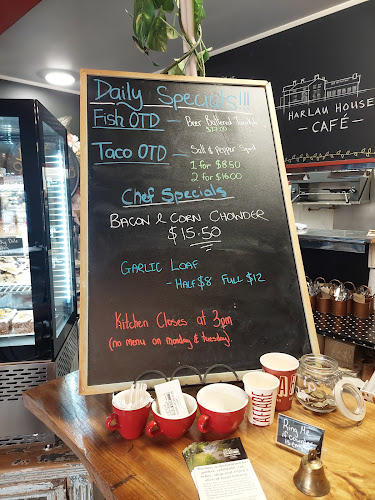 Daily Specials!!!
Fish OTD - Beer Battered
$17.00
Taco OTD - Salt & Pepper Squid
1 for $8.50
2 for $16.00
Chef Specials
BACON & CORN CHOWDER
$15.50
GARLIC LOAF
- HALF $8 FULL $12
Kitchen Closes at 3pm
(no menu on monday & tuesday)
HARLAU HOUSE
- CAFÉ -
Ring Me